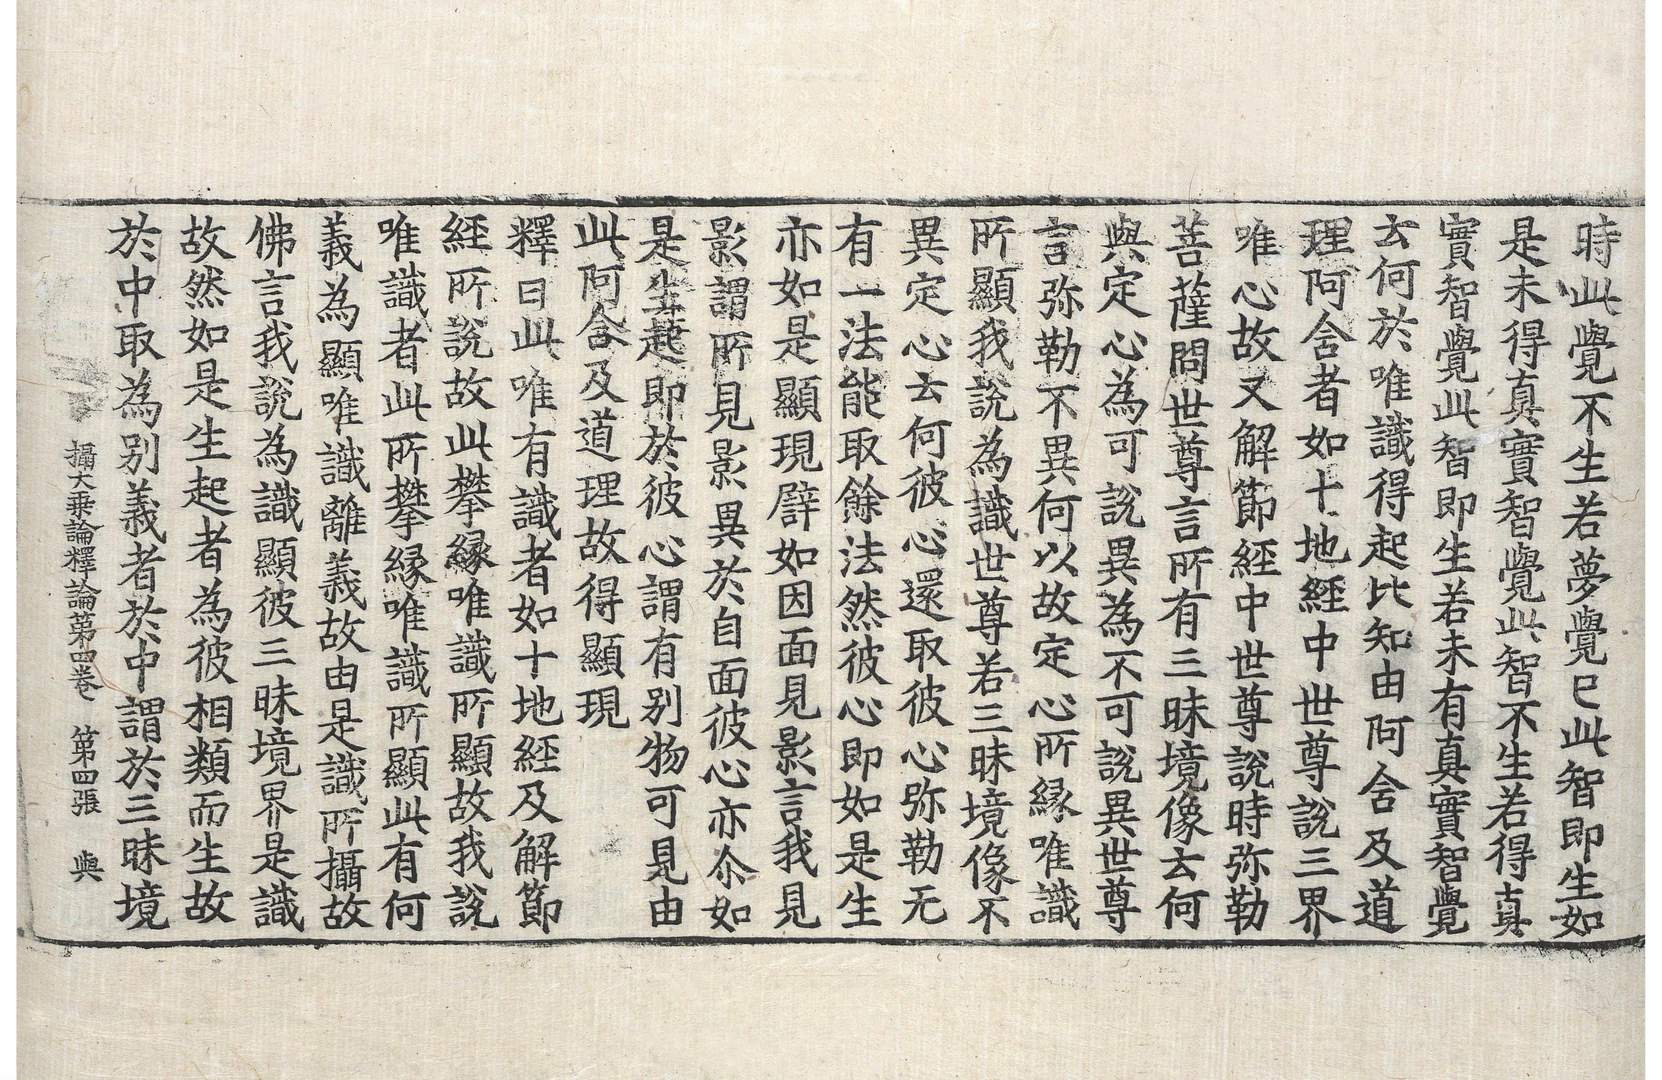 時此覺不生若夢覺已此智即生如
是未得真實智覺此智不生若得真
實智覺此智即生若未有真實智覺
云何於唯識得起比知由阿含及道
理阿含者如十地經中世尊說三界
唯心故又解節經中世尊說時弥勒
菩薩問世尊言所有三昧境像云何
與定心為可說異為不可說異世尊
言弥勒不異何以故定心所縁唯識
所顯我說為識世尊若三昧境像不
異定心云何彼心還取彼心弥勒无
有一法能取餘法然彼心即如是生
亦如是顯現辟如因面見影言我見
影謂所見影異於自面彼心亦尒如
是生起即於彼心謂有別物可見由
此阿含及道理故得顯現
釋曰此唯有識者如十地經及解節
經所說故此攀縁唯識所顯故我說
唯識者此所攀縁唯識所顯此有何
義為顯唯識離義故由是識所攝故
佛言我說為識顯彼三昧境界是識
故然如是生起者為彼相類而生故
於中取為別義者於中謂於三昧境
攝大乗論釋論第四卷　第四張　與